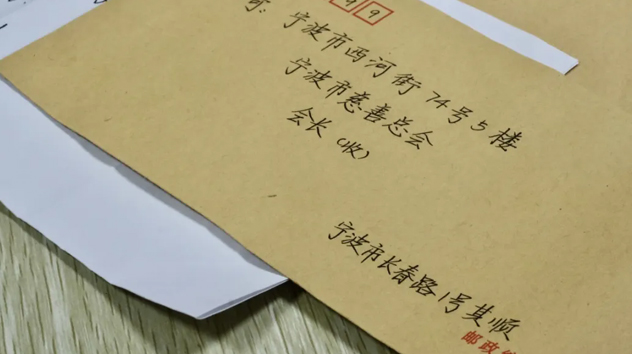 9
宁波市西河街74号5楼
宁波市慈善总会
会长（收）
宁波市长春路1号其顺
邮政